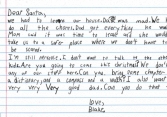 Dear Santa,
we had to leave our house. Dad was mad. We
do all the chores. Dad got everything
Mom said it was time to leave and she would
take us to a safer place where we don't have to
be scared.
I'm still nervous. I don't want to talk to the other
kids. Are you going to come this Christmas? We don't
any of our stuff here. Can you bring some chapter
a dictionary, and a compass and a watch? I also want
very very Very good dad. Can you do that
love,
Blake